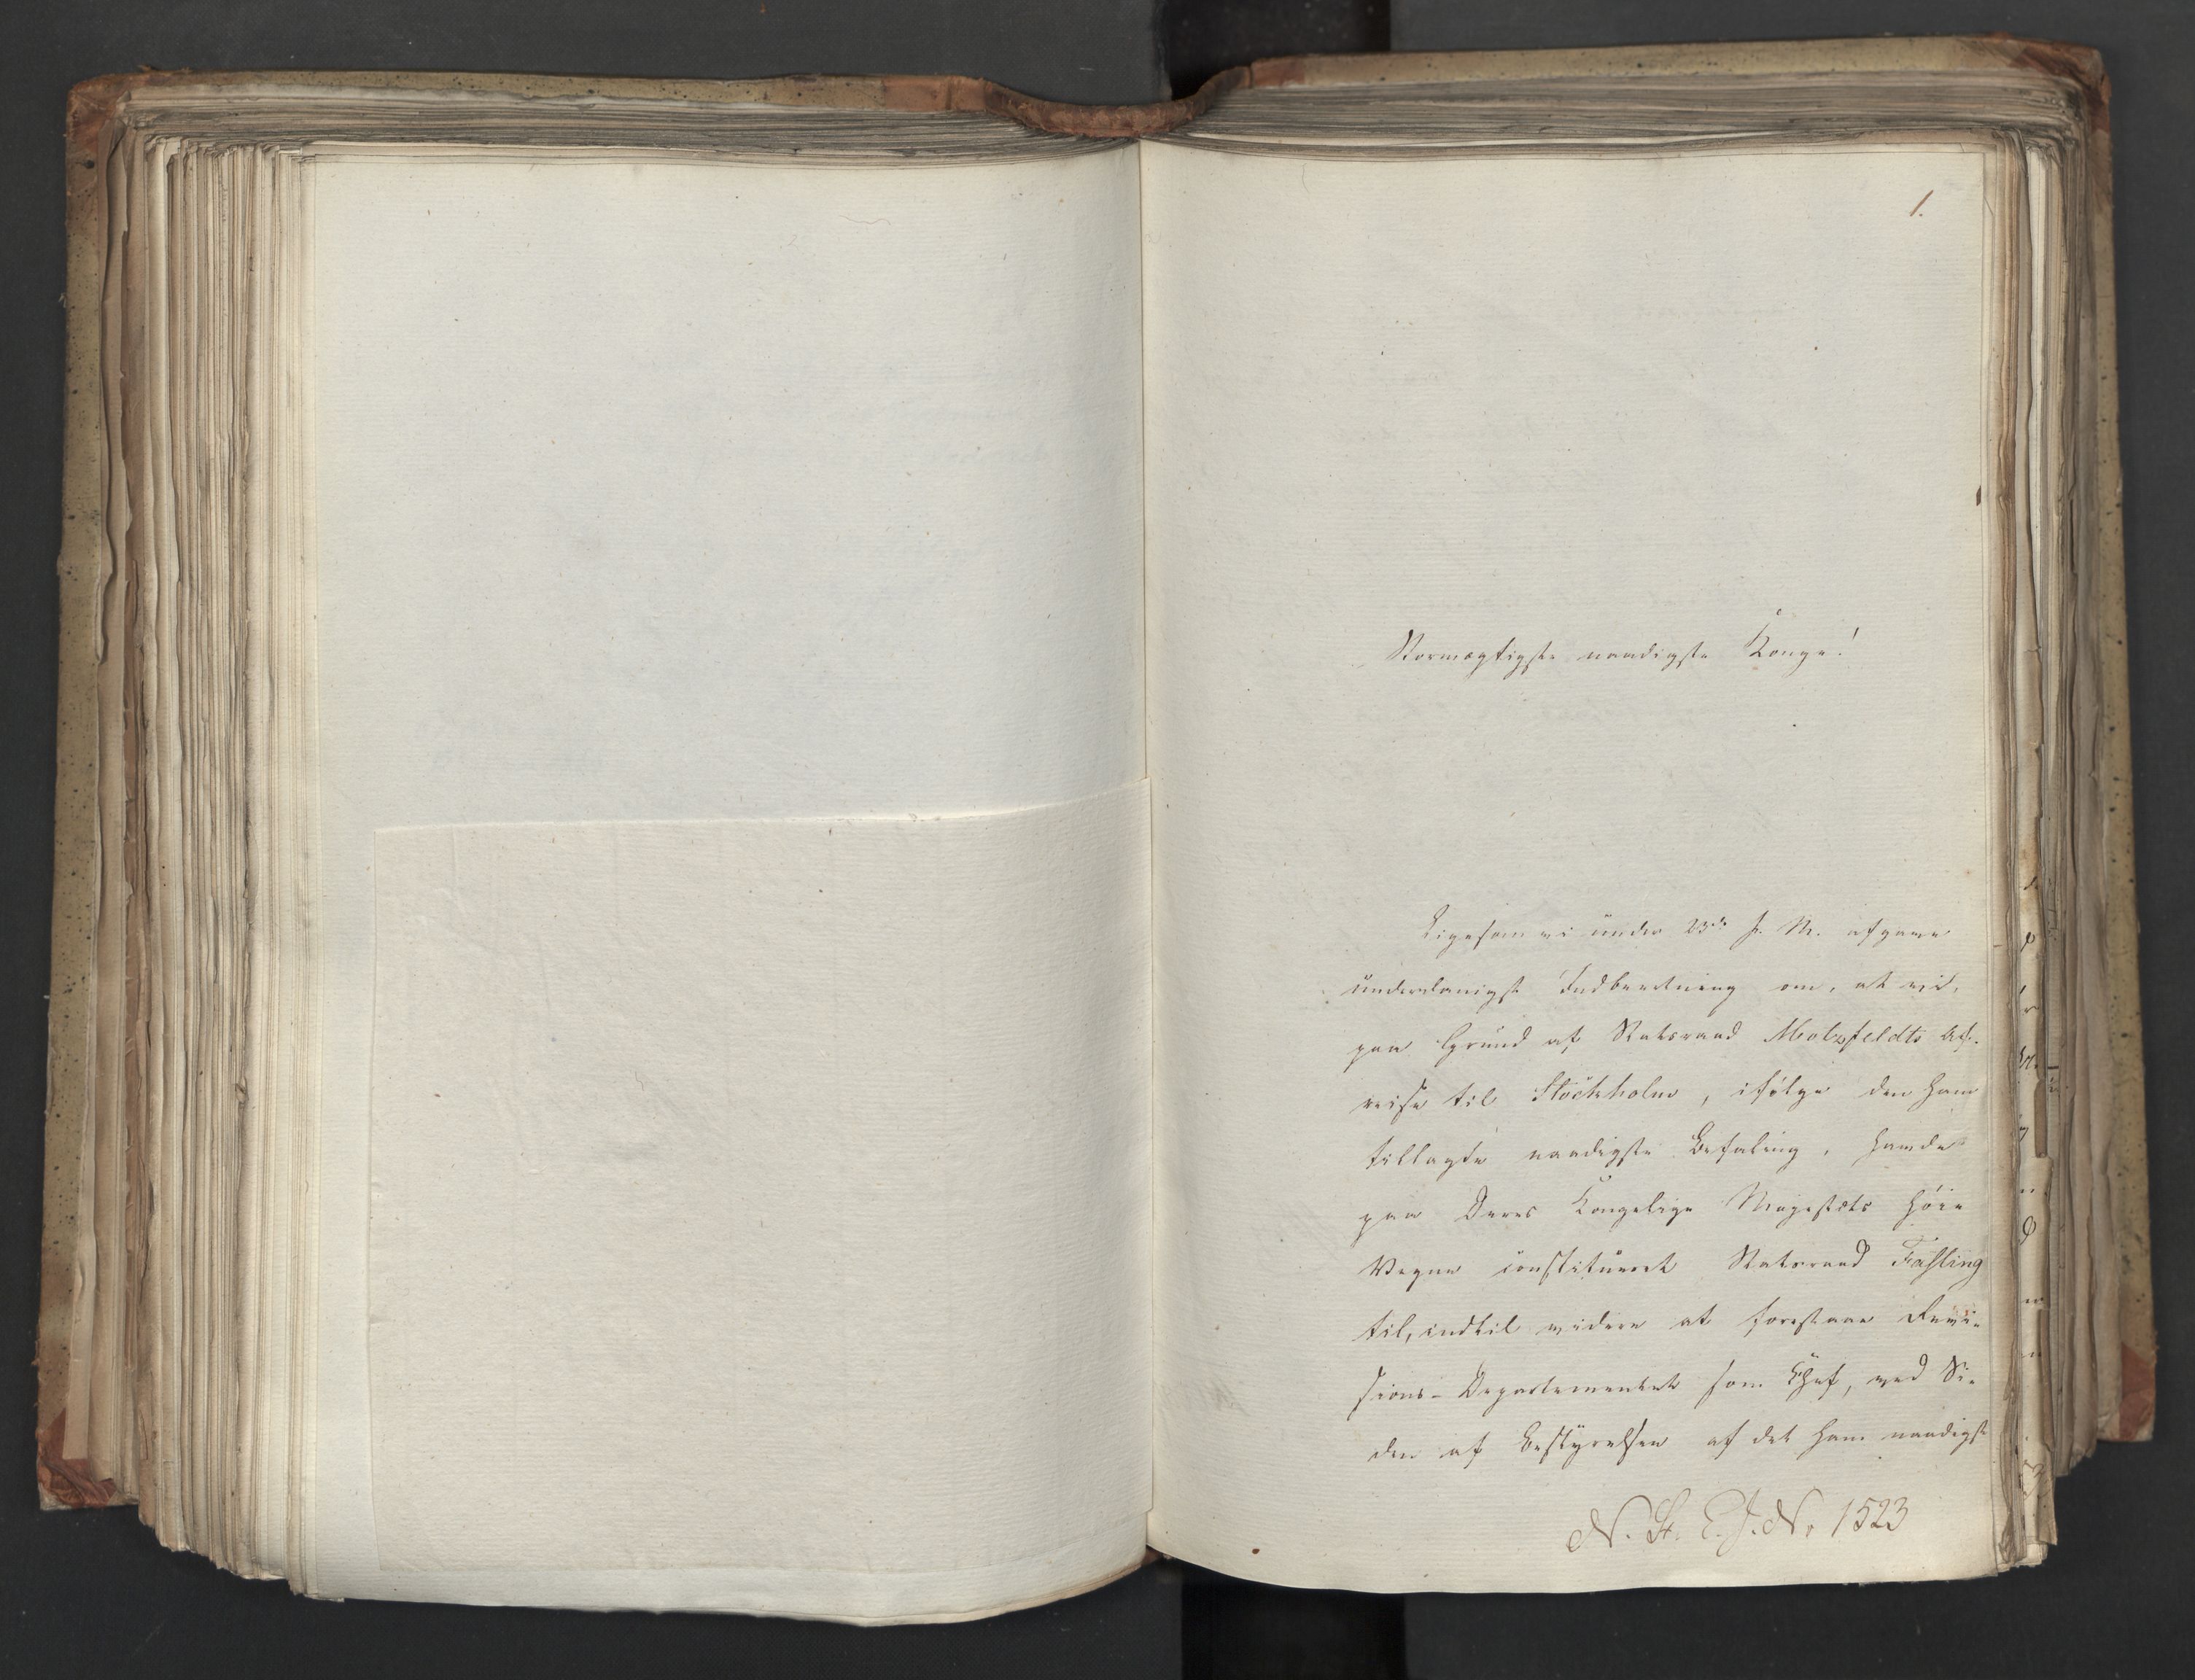 1.
Stormægtigste naadigste Konge!
Ligesom vi under 23de f. M. afgave
underdanigst Indberetning om, at vi,
paa Grund af Statsraad Motzfeldts Af-
reise til Stockholm, ifølge den ham
tillagte naadigste Befaling, havde
paa Deres Kongelige Majestæts høie
Vegne constitueret Statsraad Fasting
til, indtil videre at forestaae Revi-
sions-Departementet som Chef, ved Si-
den af Bestyrelsen af det ham naadigst
N. St. E. J. N. 1523